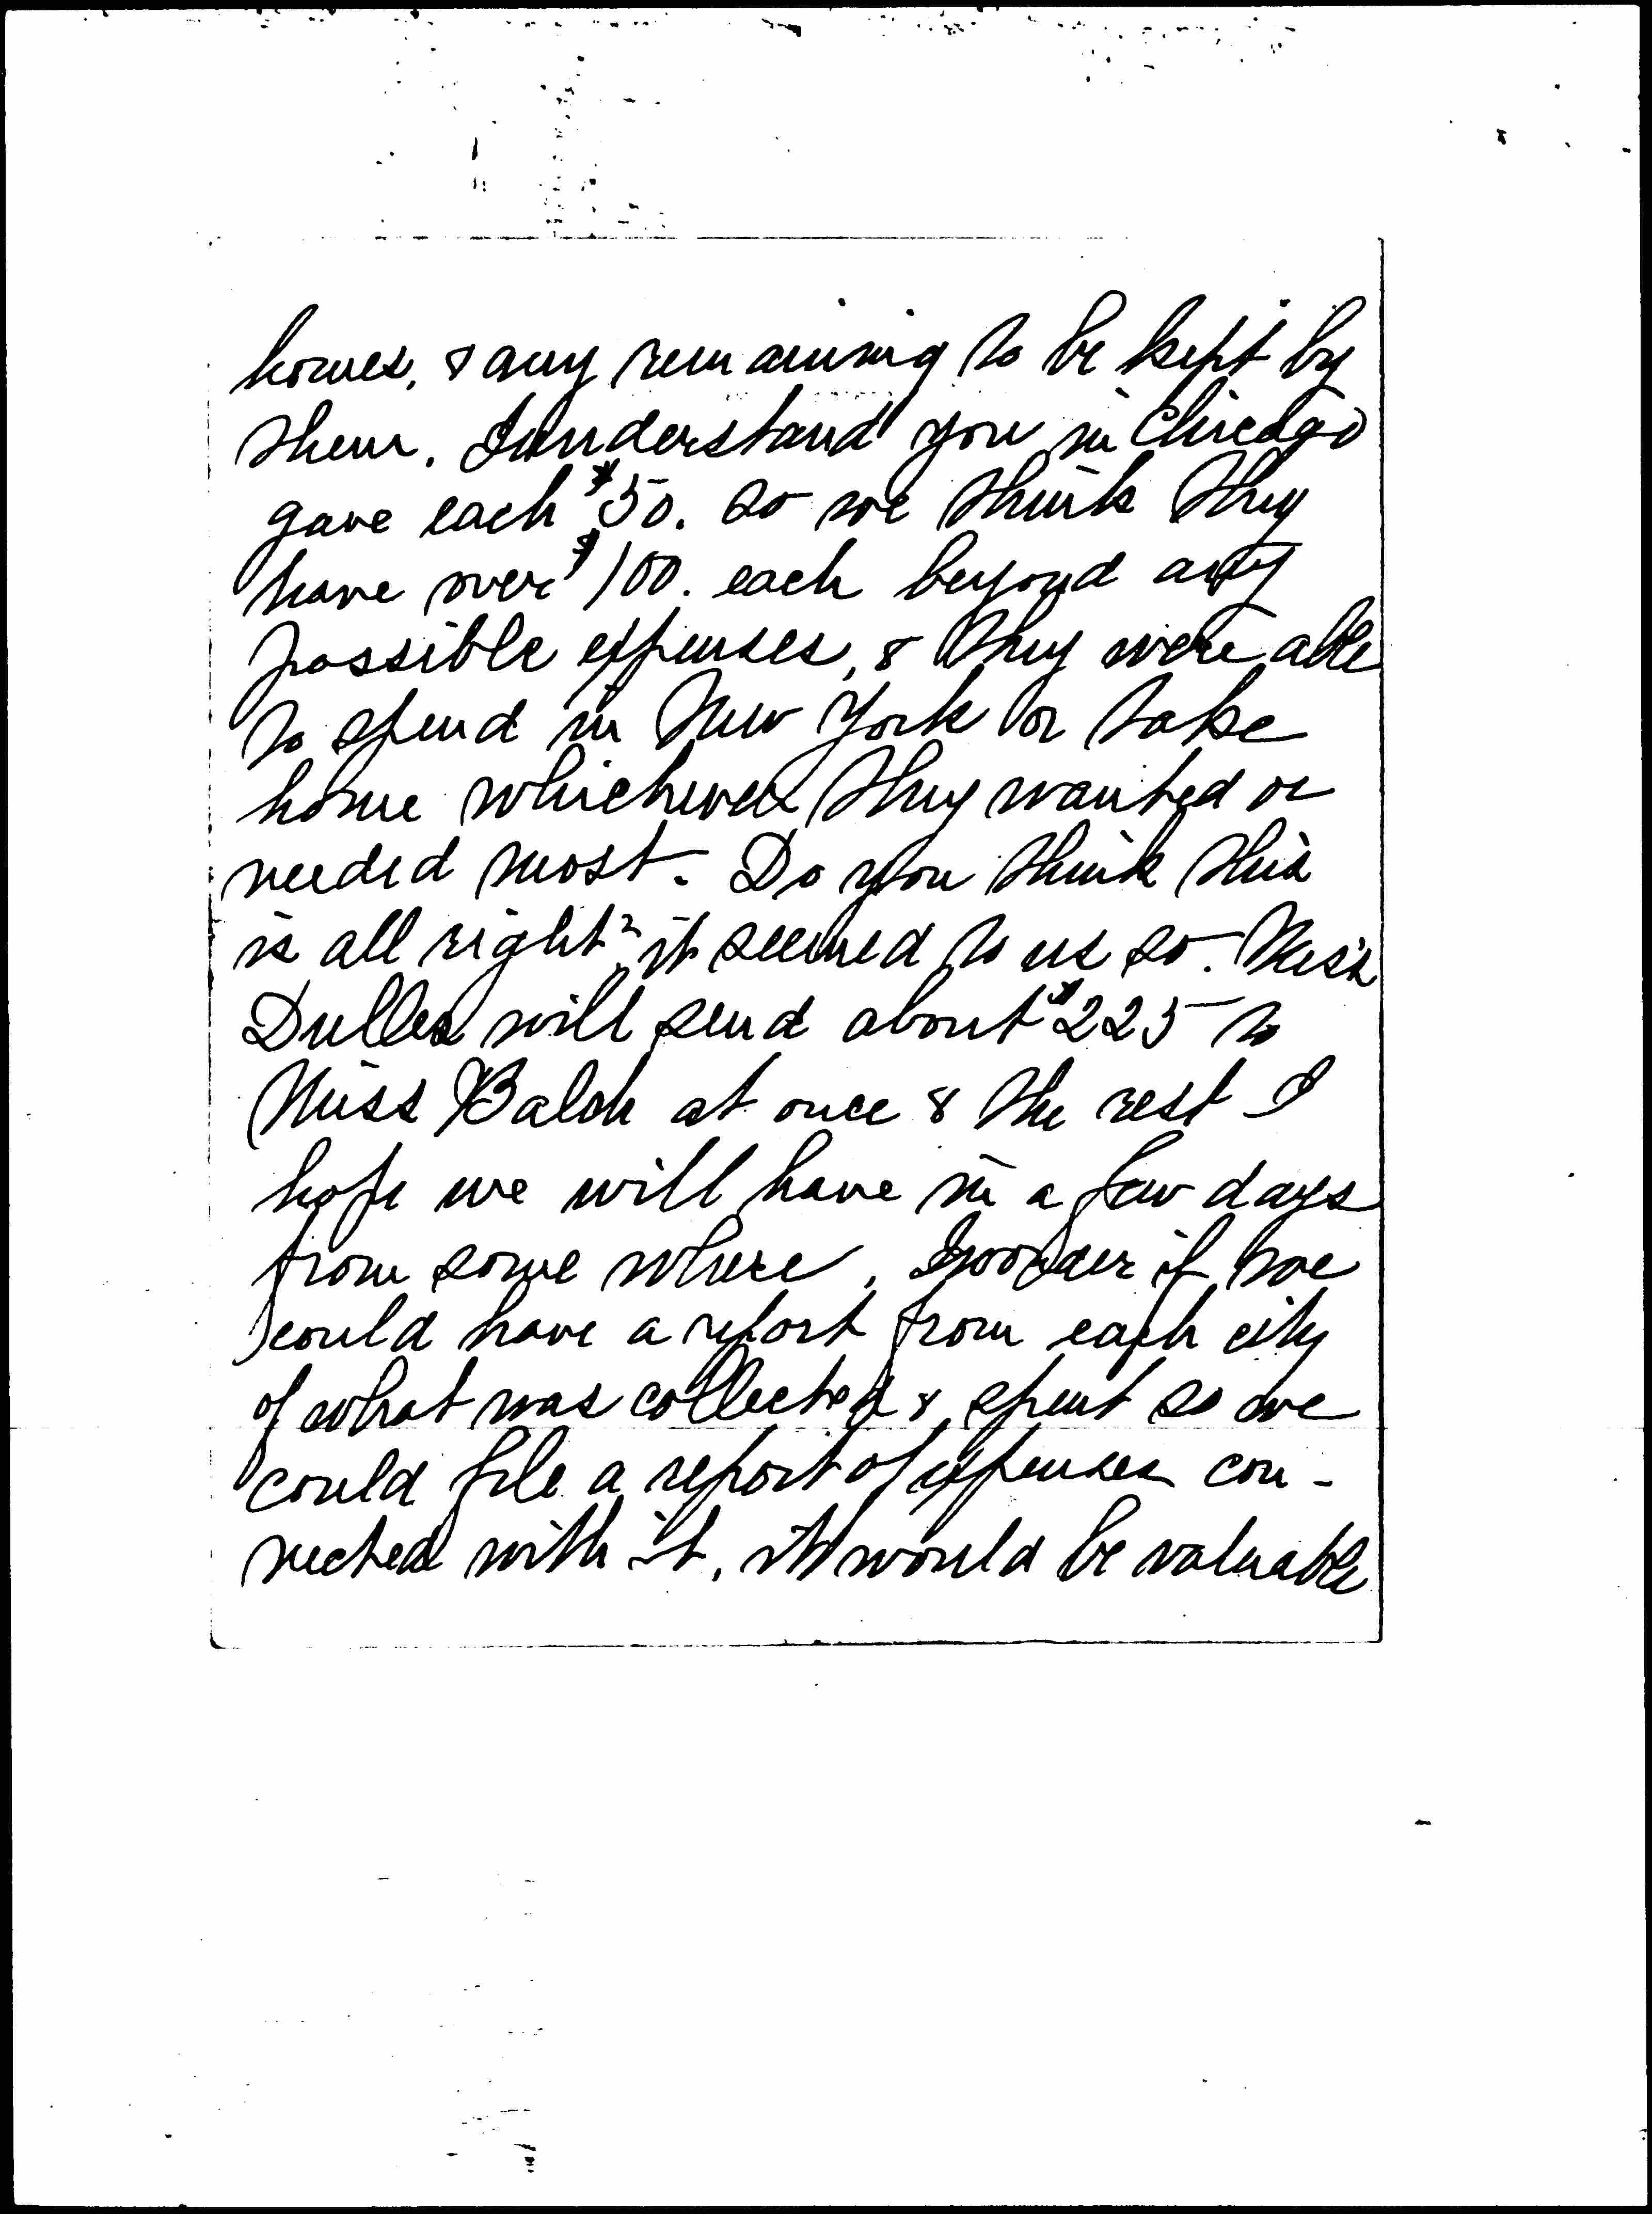 homes, & any remaining to be kept by
them. I understand you in Chicago
gave each $50. so we think they
have over $100. each beyond any
possible expenses, & they were able
to spend in New York or take
home whichever they wanted or
needed most. Do you think this
is all right? it seemed to us so. Miss
Dulles will send about $225 to
Miss Balch at once & the rest I
hope we will have in a few days
from some where. I wonder if we
could have a report from each city
of what was collected & spent so we
could file a report of expenses con-
nected with it. it would be valuable